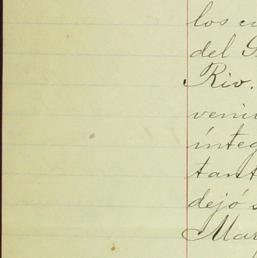 los cu
del G
Rio.
veni
integ
tant
dejó s
Mar